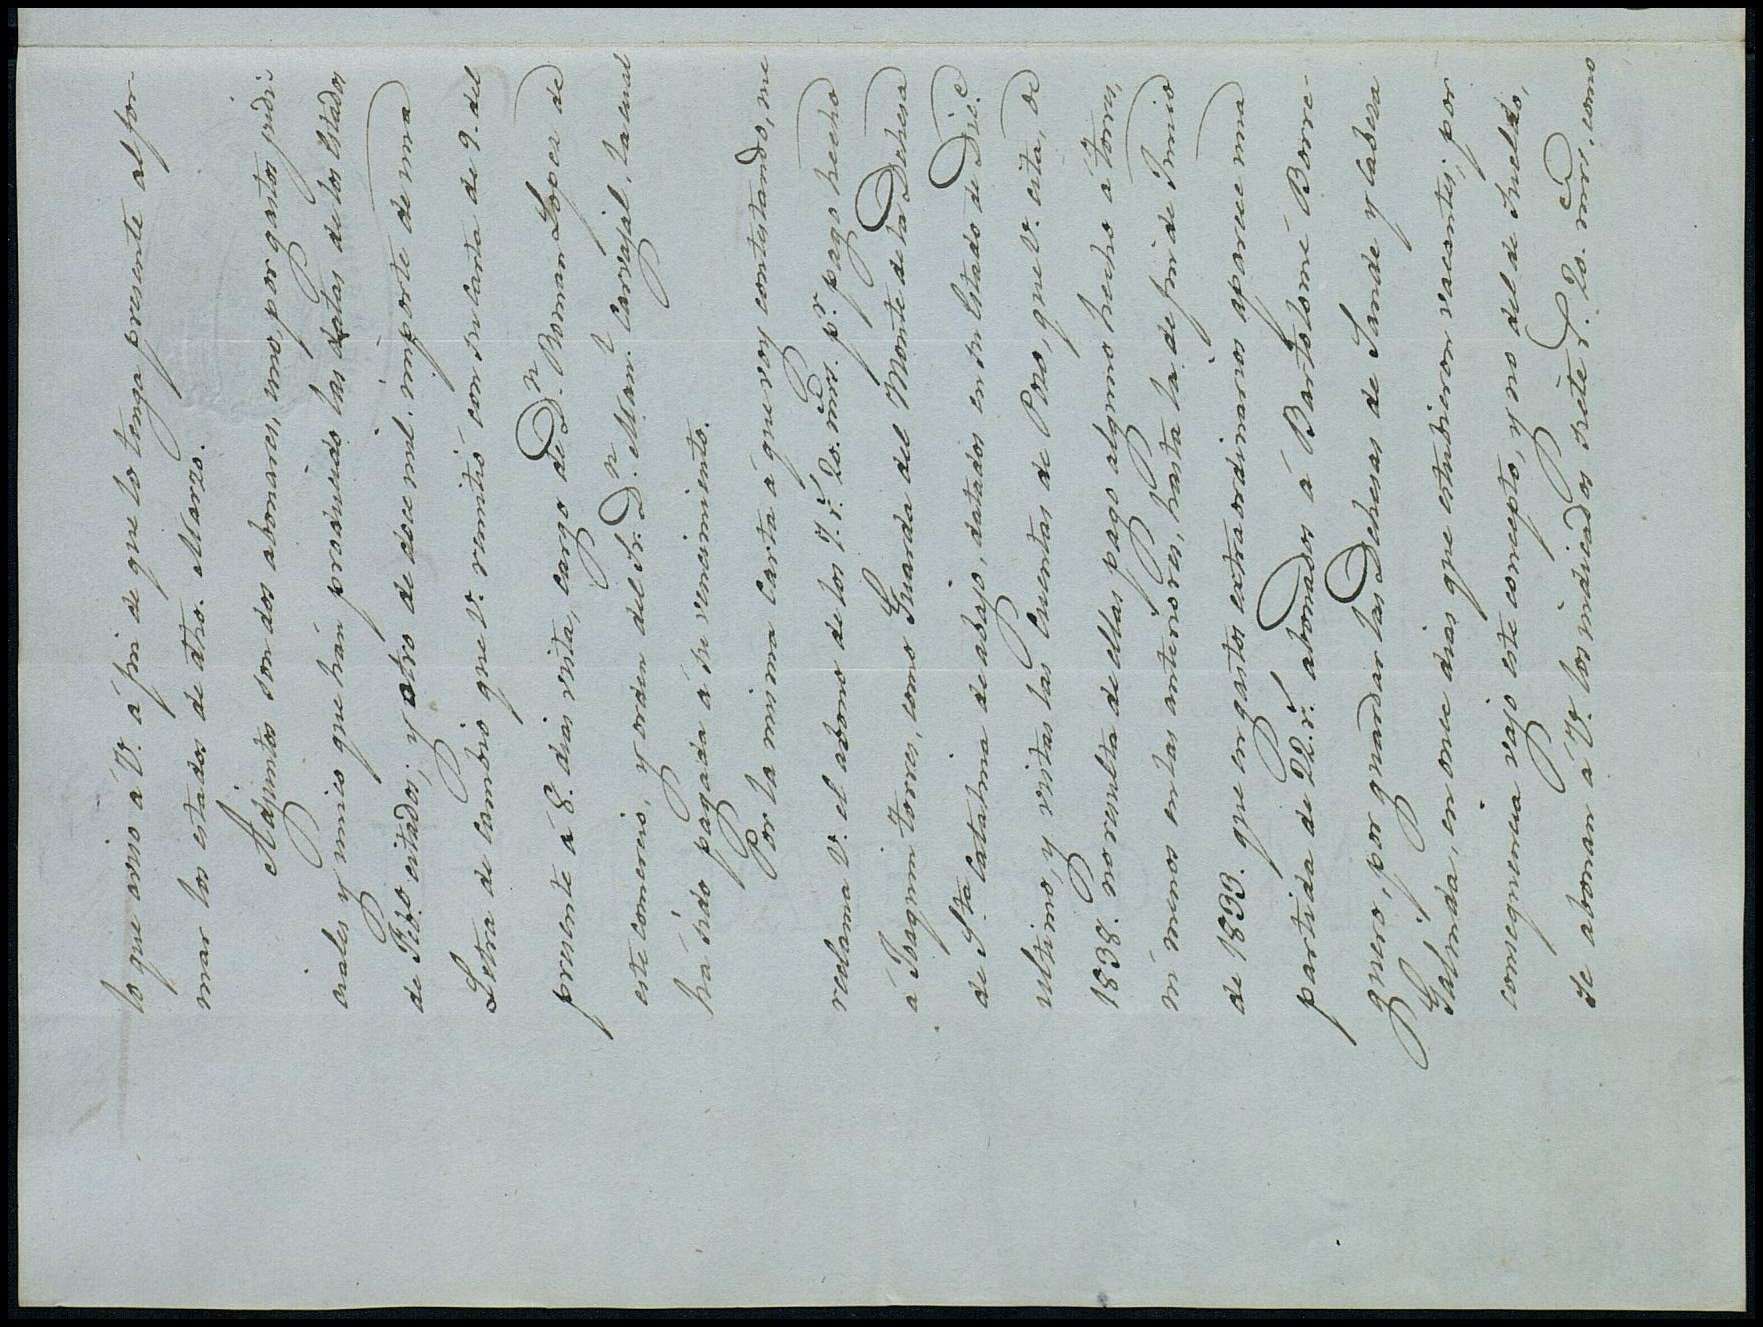 lo que aviso á V. á fin de que lo tenga presente al for-
mar los estados de dho. Marzo.
Adjuntos son dos abonares, uno por gastos judi-
ciales y mios que hán producido las datas de los Estados
de Feb.o citados; y otro de doce mil. importe de una
Letra de cambio que V. remitió con su carta de 9. del
presente á 8. dias vista, cargo de D.n Roman Lopez de
este comercio, y orden del Sr. D.n Man.l Carvajal, la cual
há sido pagada á su vencimiento.
Por la misma carta á que voy contestando, me
reclama V. el abono de los 7. r.s 20. mrs. p.r pago hecho
á Joaquin Torres, como Guarda del Monte de la Dehesa
de S.ta Catalina de abajo, datados en su Estado de Dic.e
ultimo, y vistas las Cuentas de Pozo, que V. cita, de
1838. no resulta de ellas pago alguno hecho á Torres,
ni menos en las anteriores, hasta la de fin de Junio
de 1833. que en gastos extraordinarios aparece una
partida de 22. r.s abonados á Bartolomé Borre-
guero, por guardar las Dehesas de Sande y Cabeza
Galinda, en once dias que estubieron vacantes; por
consequencia vajo este concepto, y no del de sueldo,
se abonan á V. los indicados siete r.s 20. mrs, como